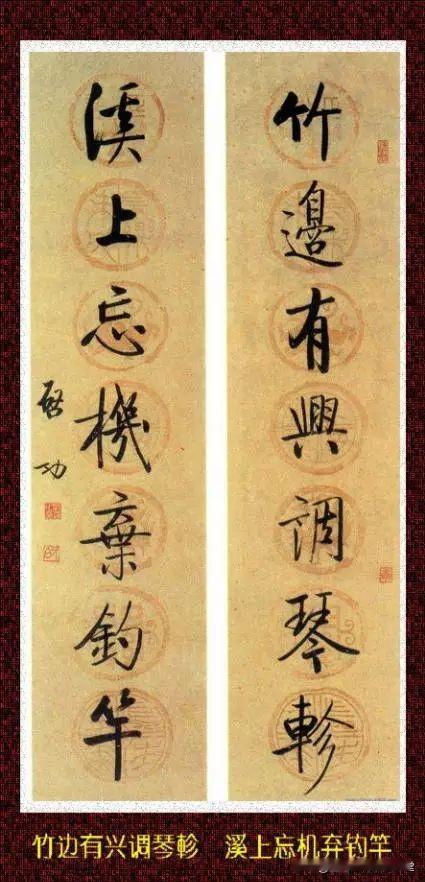 竹邊有興調琴軫
溪上忘機棄釣竿
啓功
竹边有兴调琴軫 溪上忘机弃钓竿